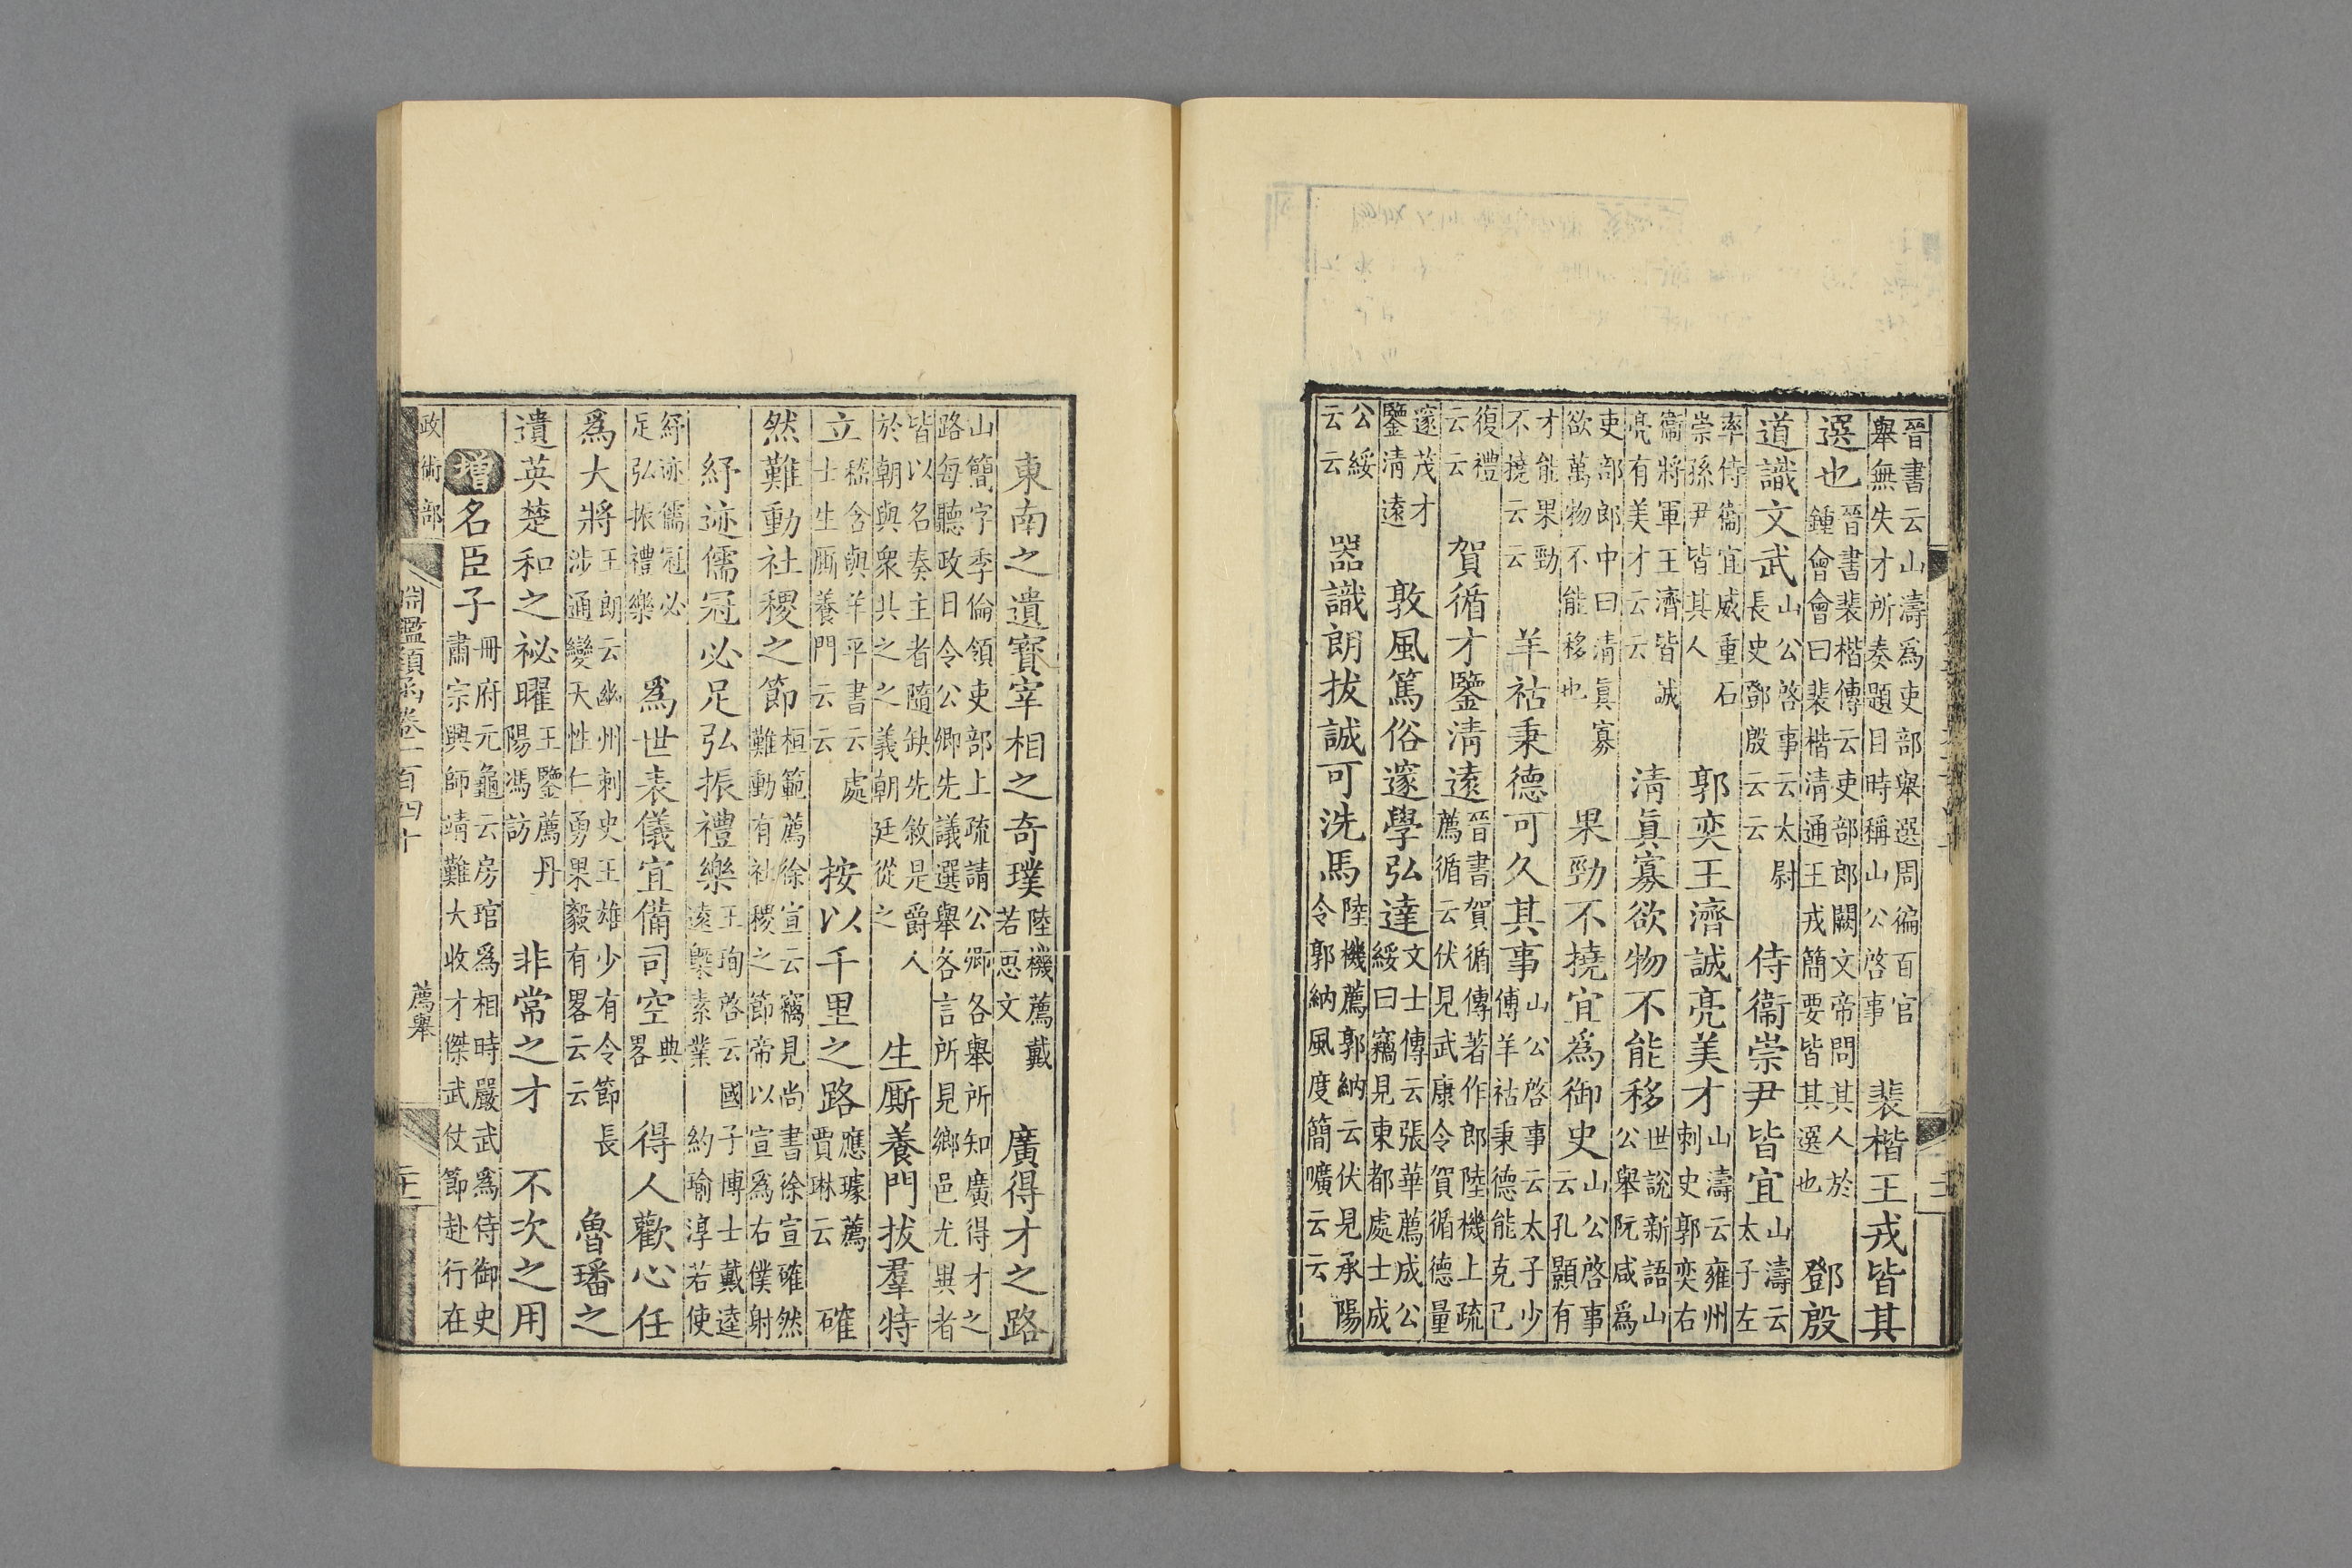 晉書云山濤爲吏部舉選周徧百官舉無失才所奏題目時稱山公啓事　裴楷王戎皆其
選也晉書裴楷傳云吏部郎闕文帝問其人於鍾會會曰裴楷清通王戎簡要皆其選也　鄧殷
道識文武山公啓事云太尉長史鄧殷云云　侍衞崇尹皆宜山濤云太子左
率侍衞宜威重石崇孫尹皆其人　郭奕王濟誠亮美才山濤云雍州刺史郭奕右
衞將軍王濟皆誠亮有美才云云　清眞寡欲物不能移世說新語山公舉阮咸爲
吏部郎中曰清眞寡欲萬物不能移也　果勁不撓宜爲御史山公啓事云孔顥有
才能果勁不撓云云　羊祜秉德可久其事山公啓事云太子少傅羊祜秉德能克已
復禮云云　賀循才鑒清遠晉書賀循傳著作郎陸機上疏薦循云伏見武康令賀循德量
邃茂才鑒清遠　敦風篤俗邃學弘達文士傳云張華薦成公綏曰竊見東都處士成
公綏云云　器識朗拔誠可洗馬陸機薦郭納云伏見承陽令郭納風度簡曠云云
東南之遺寶宰相之奇璞陸機薦戴若思文　廣得才之路
山簡字季倫領吏部上疏請公卿各舉所知廣得才之路每聽政日令公卿先議選舉各言所見鄉邑尤異者
皆以名奏主者隨缺先敘是爵人於朝與衆共之之義朝廷從之　生厮養門拔羣特
立嵇含與羊平書云處士士生厮養門云云　按以千里之路應璩薦賈琳云　確
然難動社稷之節桓範薦徐宣云竊見尚書徐宣確然難動有社稷之節帝以宣爲右僕射
紓迹儒冠必足弘振禮樂王珣啓云國子博士戴逵遠槩素業約瑜淳若使
紓迹儒冠必足弘振禮樂　爲世表儀宜備司空典畧　得人歡心任
爲大將王朗云幽州刺史王雄少有令節長涉通變天性仁勇果毅有畧云云　魯璠之
遺英楚和之祕曜王鑒薦丹陽馮訪　非常之才　不次之用
增名臣子冊府元龜云房琯爲相時嚴武爲侍御史肅宗興師靖難大收才傑武仗節赴行在
政術部　淵鑑類函卷一百四十　薦舉